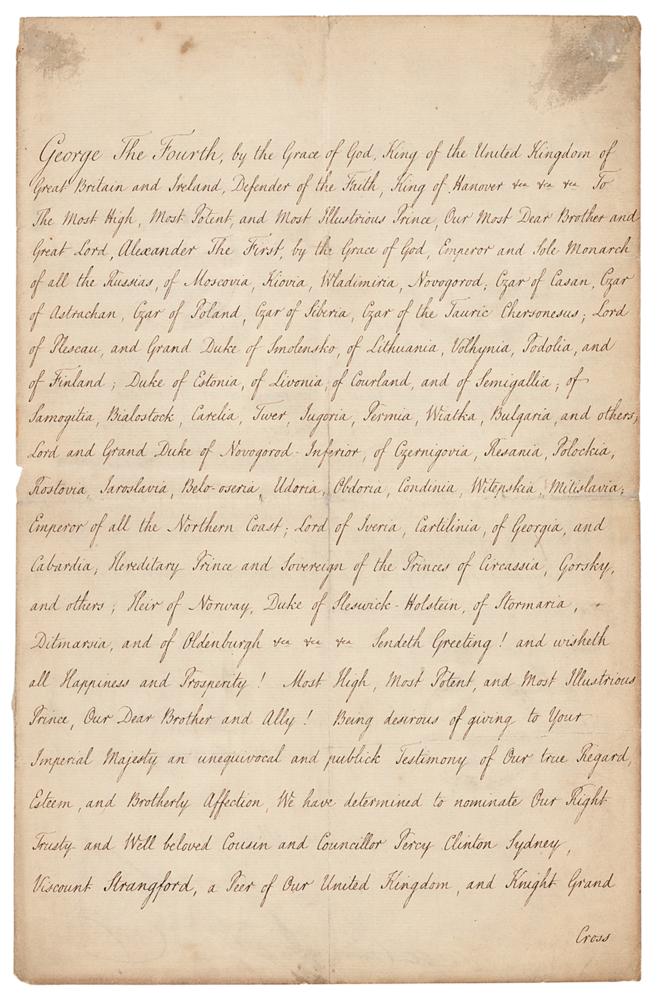 George The Fourth, by the Grace of God, King of the United Kingdom of
Great Britain and Ireland, Defender of the Faith, King of Hanover &ca &ca &ca To
The Most High, Most Potent, and Most Illustrious Prince, Our Most Dear Brother and
Great Lord, Alexander The First, by the Grace of God, Emperor and Sole Monarch
of all the Russias, of Moscovia, Kiovia, Wladimiria, Novogorod; Czar of Casan, Czar
of Astrachan, Czar of Poland, Czar of Siberia, Czar of the Tauric Chersonesus; Lord
of Plescau, and Grand Duke of Smolensko, of Lithuania, Volhynia, Podolia, and
of Finland; Duke of Estonia, of Livonia, of Courland, and of Semigallia; of
Samogitia, Bialostock, Carelia, Twer, Jugoria, Permia, Wiatka, Bulgaria, and others;
Lord and Grand Duke of Novogorod-Inferior, of Czernigovia, Resania, Polockia,
Rostovia, Jaroslavia, Belo-oseria, Udoria, Obdoria, Condinia, Witepskia, Mitislavia;
Emperor of all the Northern Coast; Lord of Iveria, Cartilinia, of Georgia, and
Cabardia; Hereditary Prince and Sovereign of the Princes of Circassia, Gorsky,
and others; Heir of Norway, Duke of Sleswick-Holstein, of Stormaria,
Ditmarsia, and of Oldenburgh &ca &ca &ca Sendeth Greeting! and wisheth
all Happiness and Prosperity! Most High, Most Potent, and Most Illustrious
Prince, Our Dear Brother and Ally! Being desirous of giving to Your
Imperial Majesty an unequivocal and publick Testimony of Our true Regard,
Esteem, and Brotherly Affection, We have determined to nominate Our Right
Trusty and Well beloved Cousin and Councillor Percy Clinton Sydney,
Viscount Strangford, a Peer of Our United Kingdom, and Knight Grand
Cross